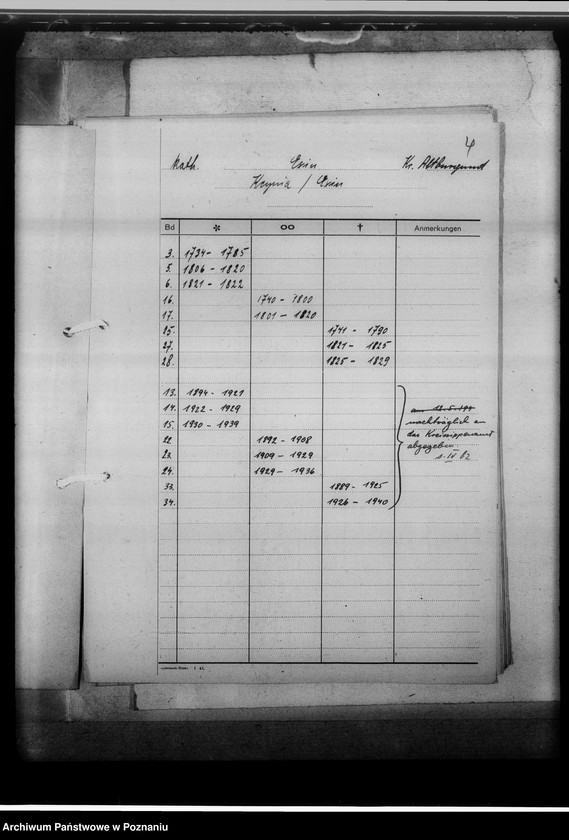 4
kath. Exin Kr. Altburgund
Kcynia / Exin
Bd * ∞ † Anmerkungen
3. 1734 - 1785
5. 1806 - 1820
6. 1821 - 1822
16. 1740 - 1800
17. 1801 - 1820
25. 1741 - 1790
27. 1821 - 1825
28. 1825 - 1829
13. 1894 - 1921
14. 1922 - 1929
15. 1930 - 1939
22. 1892 - 1908
23. 1909 - 1929
24. 1929 - 1936
33. 1889 - 1925
34. 1926 - 1940
nachträglich an
das Kreissippenamt
abgegeben.
1. IV 42
Archiwum Państwowe w Poznaniu